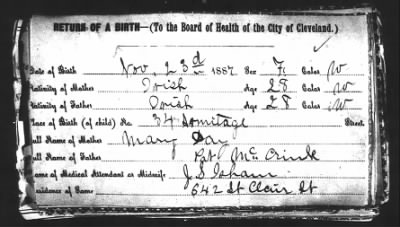 RETURN OF A BIRTH—(To the Board of Health of the City of Cleveland.)
Date of Birth Nov. 23rd 1887 Sex F. Color W
Nativity of Mother Irish Age 28 Color W
Nativity of Father Irish Age 28 Color W
Place of Birth (of child) No. 34 Hermitage Street
Full Name of Mother Mary Day
Full Name of Father Pat Mc
Name of Medical Attendant or Midwife J. S. Isham
Residence of Same 642 St Clair St